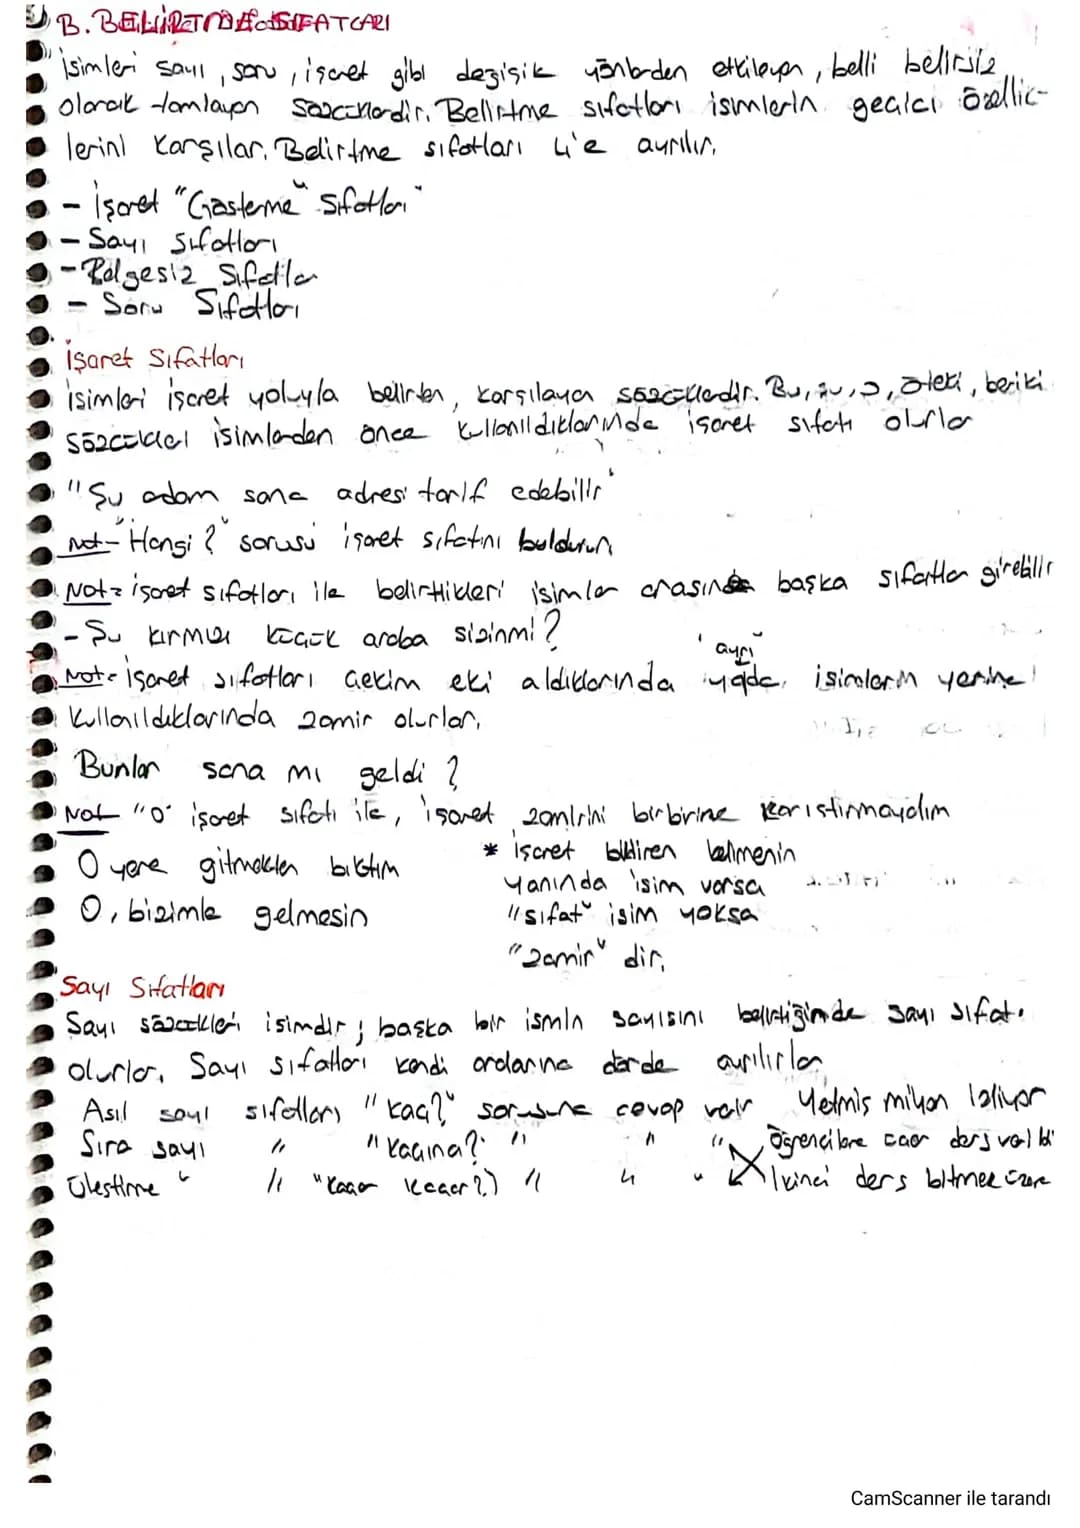 B. BELİRTME SIFATLARI
isimleri sayı, soru, işaret gibi değişik yönlerden etkileyen, belli belirsiz
olarak tamlayan sözcüklerdir. Belirtme sıfatları isimlerin geçici özellik-
lerini karşılar. Belirtme sıfatları 4'e ayrılır.
- İşaret "Gösterme" Sıfatları
- Sayı sıfatları
- Belgesiz Sıfatlar
- Soru Sıfatları
İşaret Sıfatları
isimleri işaret yoluyla belirten, karşılayan sözcüklerdir. Bu, şu, o, öteki, beriki
sözcükleri isimlerden önce kullanıldıklarında işaret sıfatı olurlar
"Şu adam sana adresi tarif edebilir"
Not- "Hangi?" sorusu işaret sıfatını buldurur
Not= işaret sıfatları ile belirttikleri isimler arasında başka sıfatlar girebilir
- Şu kırmızı küçük araba sizinmi?
"ayrı"
Not= işaret sıfatları çekim eki aldıklarında yada isimlerin yerine
kullanıldıklarında zamir olurlar.
Bunlar sana mı geldi?
Not "O" işaret sıfatı ile, işaret zamirini birbirine karıştırmayalım
O yere gitmekten bıktım
O, bizimle gelmesin
* işaret bildiren kelimenin
yanında isim varsa
"sıfat" isim yoksa
"zamir" dir.
Sayı Sıfatları
Sayı sözcükleri isimdir; başka bir ismin sayısını belirttiğinde sayı sıfatı
olurlar. Sayı sıfatları kendi aralarına dörde ayrılırlar
Asıl sayı sıfatları "kaç?" sorusuna cevap verir Yetmiş milyon izliyor
Sıra sayı " "kaçına?" " " " Öğrencilere üçer ders verildi
Üleştirme " " "kaçar kaçar?" " " " İkinci ders bitmek üzere
CamScanner ile tarandı